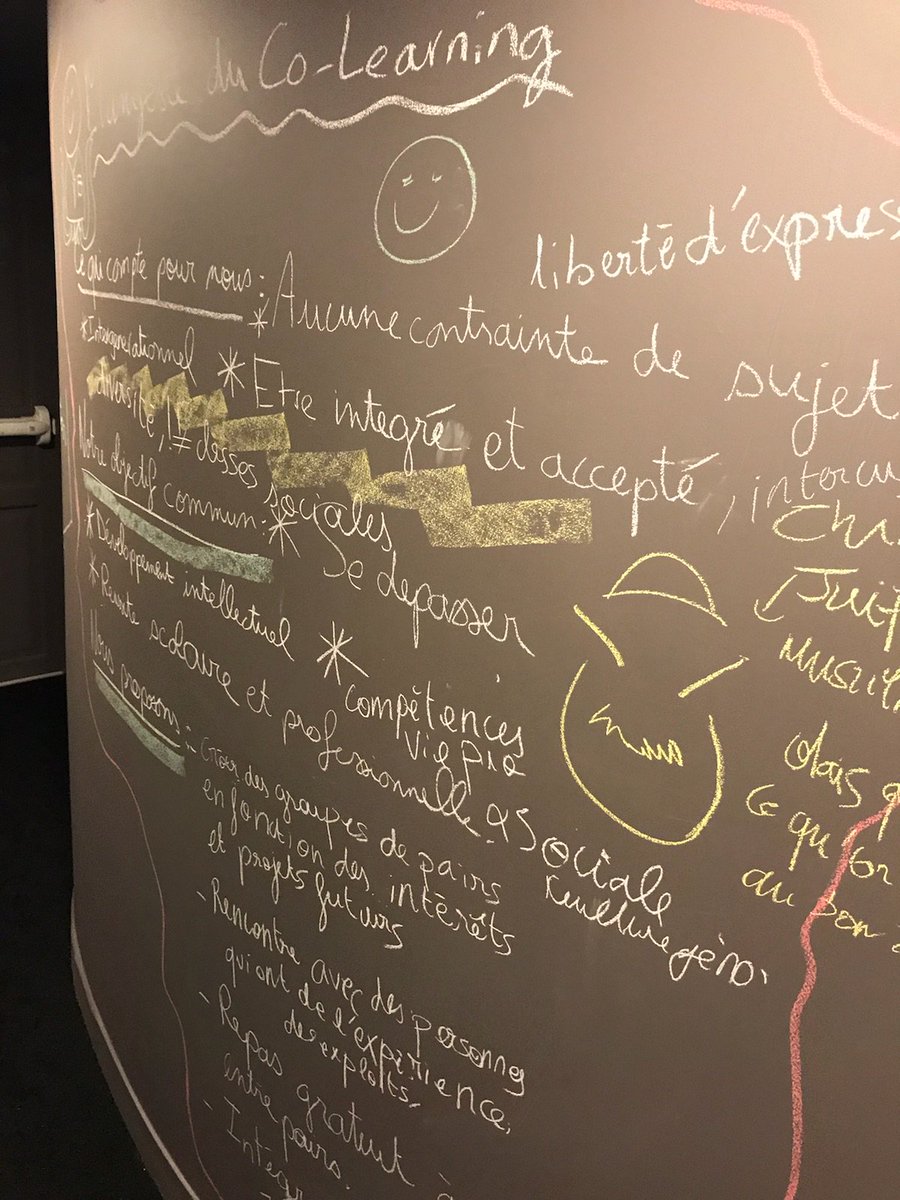 du Co-Learning
liberté d'expres
Ce qui compte pour nous :
* Aucune contrainte de sujet
* Intergenerationnel
* Etre integré et accepté, intercu
diversité, != classes sociales
Notre objectif commun :
* Se depasser
* Développement intellectuel
* Compétences
vie pro
* Réussite scolaire et professionnelle & sociale
Nous proposons :
- Créer des groupes de pairs
en fonction des intérêts
et projets futurs
- Rencontre avec des personnes
qui ont de l'expérience,
des exploits.
- Repas gratuit
entre pairs.
- Integr
Chi
Juif
Musul
Mais
Ce que l'on
du bon